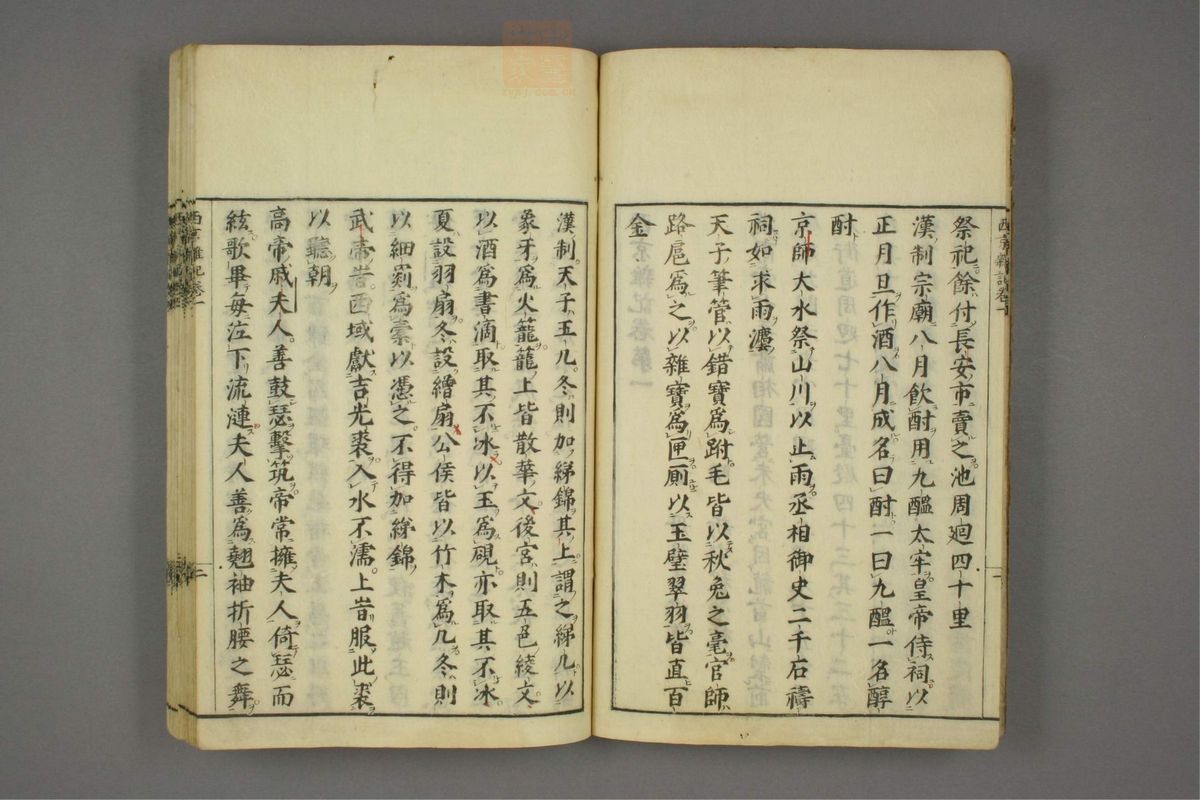 祭祀餘付長安市賣之池周廻四十里
漢制宗廟八月飲酎用九醞太牢皇帝侍祠以
正月旦作酒八月成名曰酎一曰九醞一名醇
酎
京師大水祭山川以止雨丞相御史二千石禱
祠如求雨灋
天子筆管以錯寶爲跗毛皆以秋兔之毫官師
路扈爲之以雜寶爲匣厠以玉璧翠羽皆直百
金
漢制天子玉几冬則加綈錦其上謂之綈几以
象牙爲火籠籠上皆散華文後宮則五色綾文
以酒爲書滴取其不冰以玉爲硯亦取其不冰
夏設羽扇冬設繒扇公侯皆以竹木爲几冬則
以細罽爲橐以憑之不得加綈錦
武帝時西域獻吉光裘入水不濡上時服此裘
以聽朝
高帝戚夫人善鼓瑟擊筑帝常擁夫人倚瑟而
絃歌畢每泣下流漣夫人善爲翹袖折腰之舞
西京雜記卷一
二